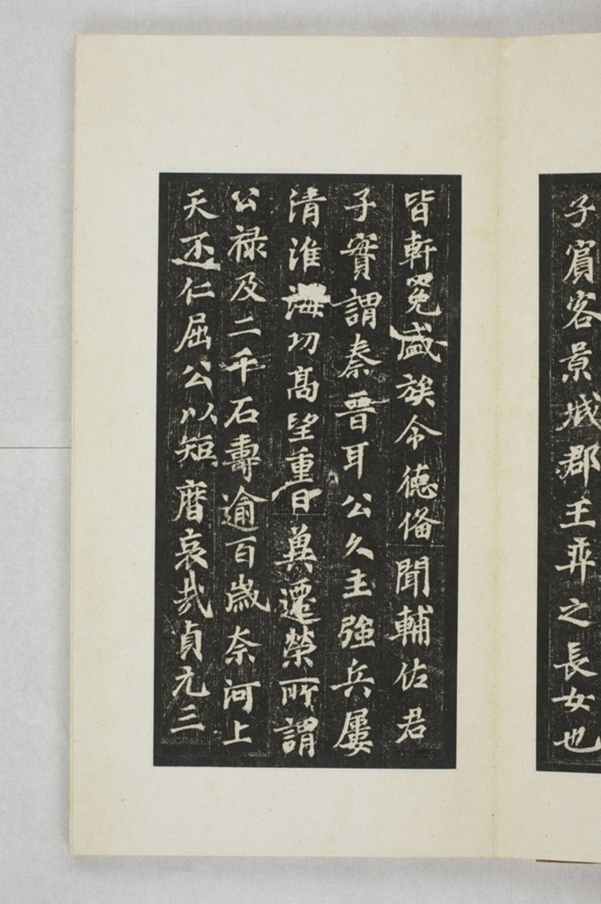 子賓客景城郡王弈之長女也
皆軒冕盛族令德俻聞輔佐君
子實謂秦晉耳公久主強兵屢
清淮海功髙望重日冀遷榮所謂
公禄及二千石壽逾百歲奈何上
天不仁屈公以短曆哀哉貞元三